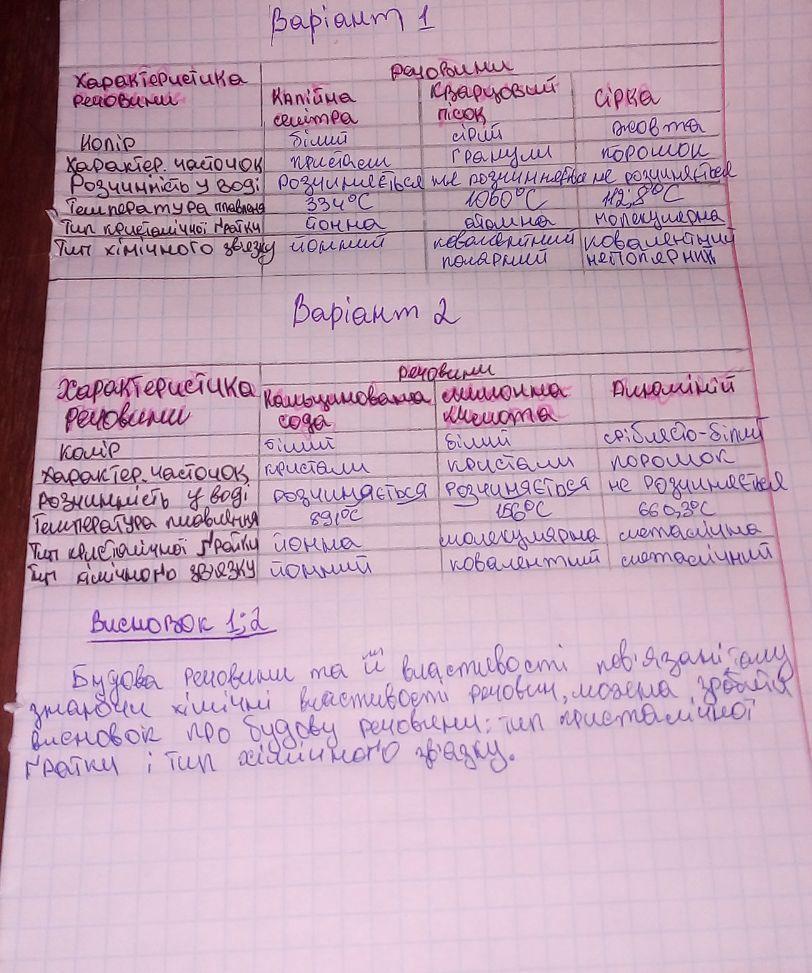 Варіант 1
речовини
Характеристика речовини
Калійна селітра
Кварцовий пісок
Сірка
Колір білий сірий жовта
Характер. часточок кристали гранули порошок
Розчинність у воді розчиняється не розчиняється не розчиняється
Температура плавлення 334°C 1060°C 112,8°C
Тип кристалічної ґратки йонна атомна молекулярна
Тип хімічного зв'язку йонний ковалентний полярний ковалентний неполярний
Варіант 2
речовини
Характеристика речовини
Кальцинована сода
лимонна кислота
Алюміній
Колір білий білий сріблясто-білий
Характер. часточок кристали кристали порошок
Розчинність у воді розчиняється розчиняється не розчиняється
Температура плавлення 891°C 156°C 660,3°C
Тип кристалічної ґратки йонна молекулярна металічна
Тип хімічного зв'язку йонний ковалентний металічний
Висновок 1;2
Будова речовини та її властивості пов'язані тому
знаючи хімічні властивості речовин, можна зробити
висновок про будову речовини: тип кристалічної
ґратки і тип хімічного зв'язку.